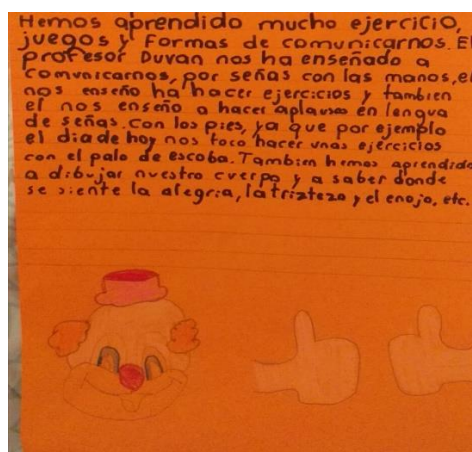 Hemos aprendido mucho ejercicio,
juegos y Formas de comunicarnos. El
profesor Duvan nos ha enseñado a
comunicarnos, por señas con las manos, el
nos enseño ha hacer ejercicios y tambien
el nos enseño a hacer aplausos en lengua
de señas. Con los pies, ya que por ejemplo
el dia de hoy nos toco hacer unas ejercicios
con el palo de escoba. Tambien hemos aprendido
a dibujar nuestro cuerpo y a saber donde
se siente la alegria, la trizteza y el enojo, etc.